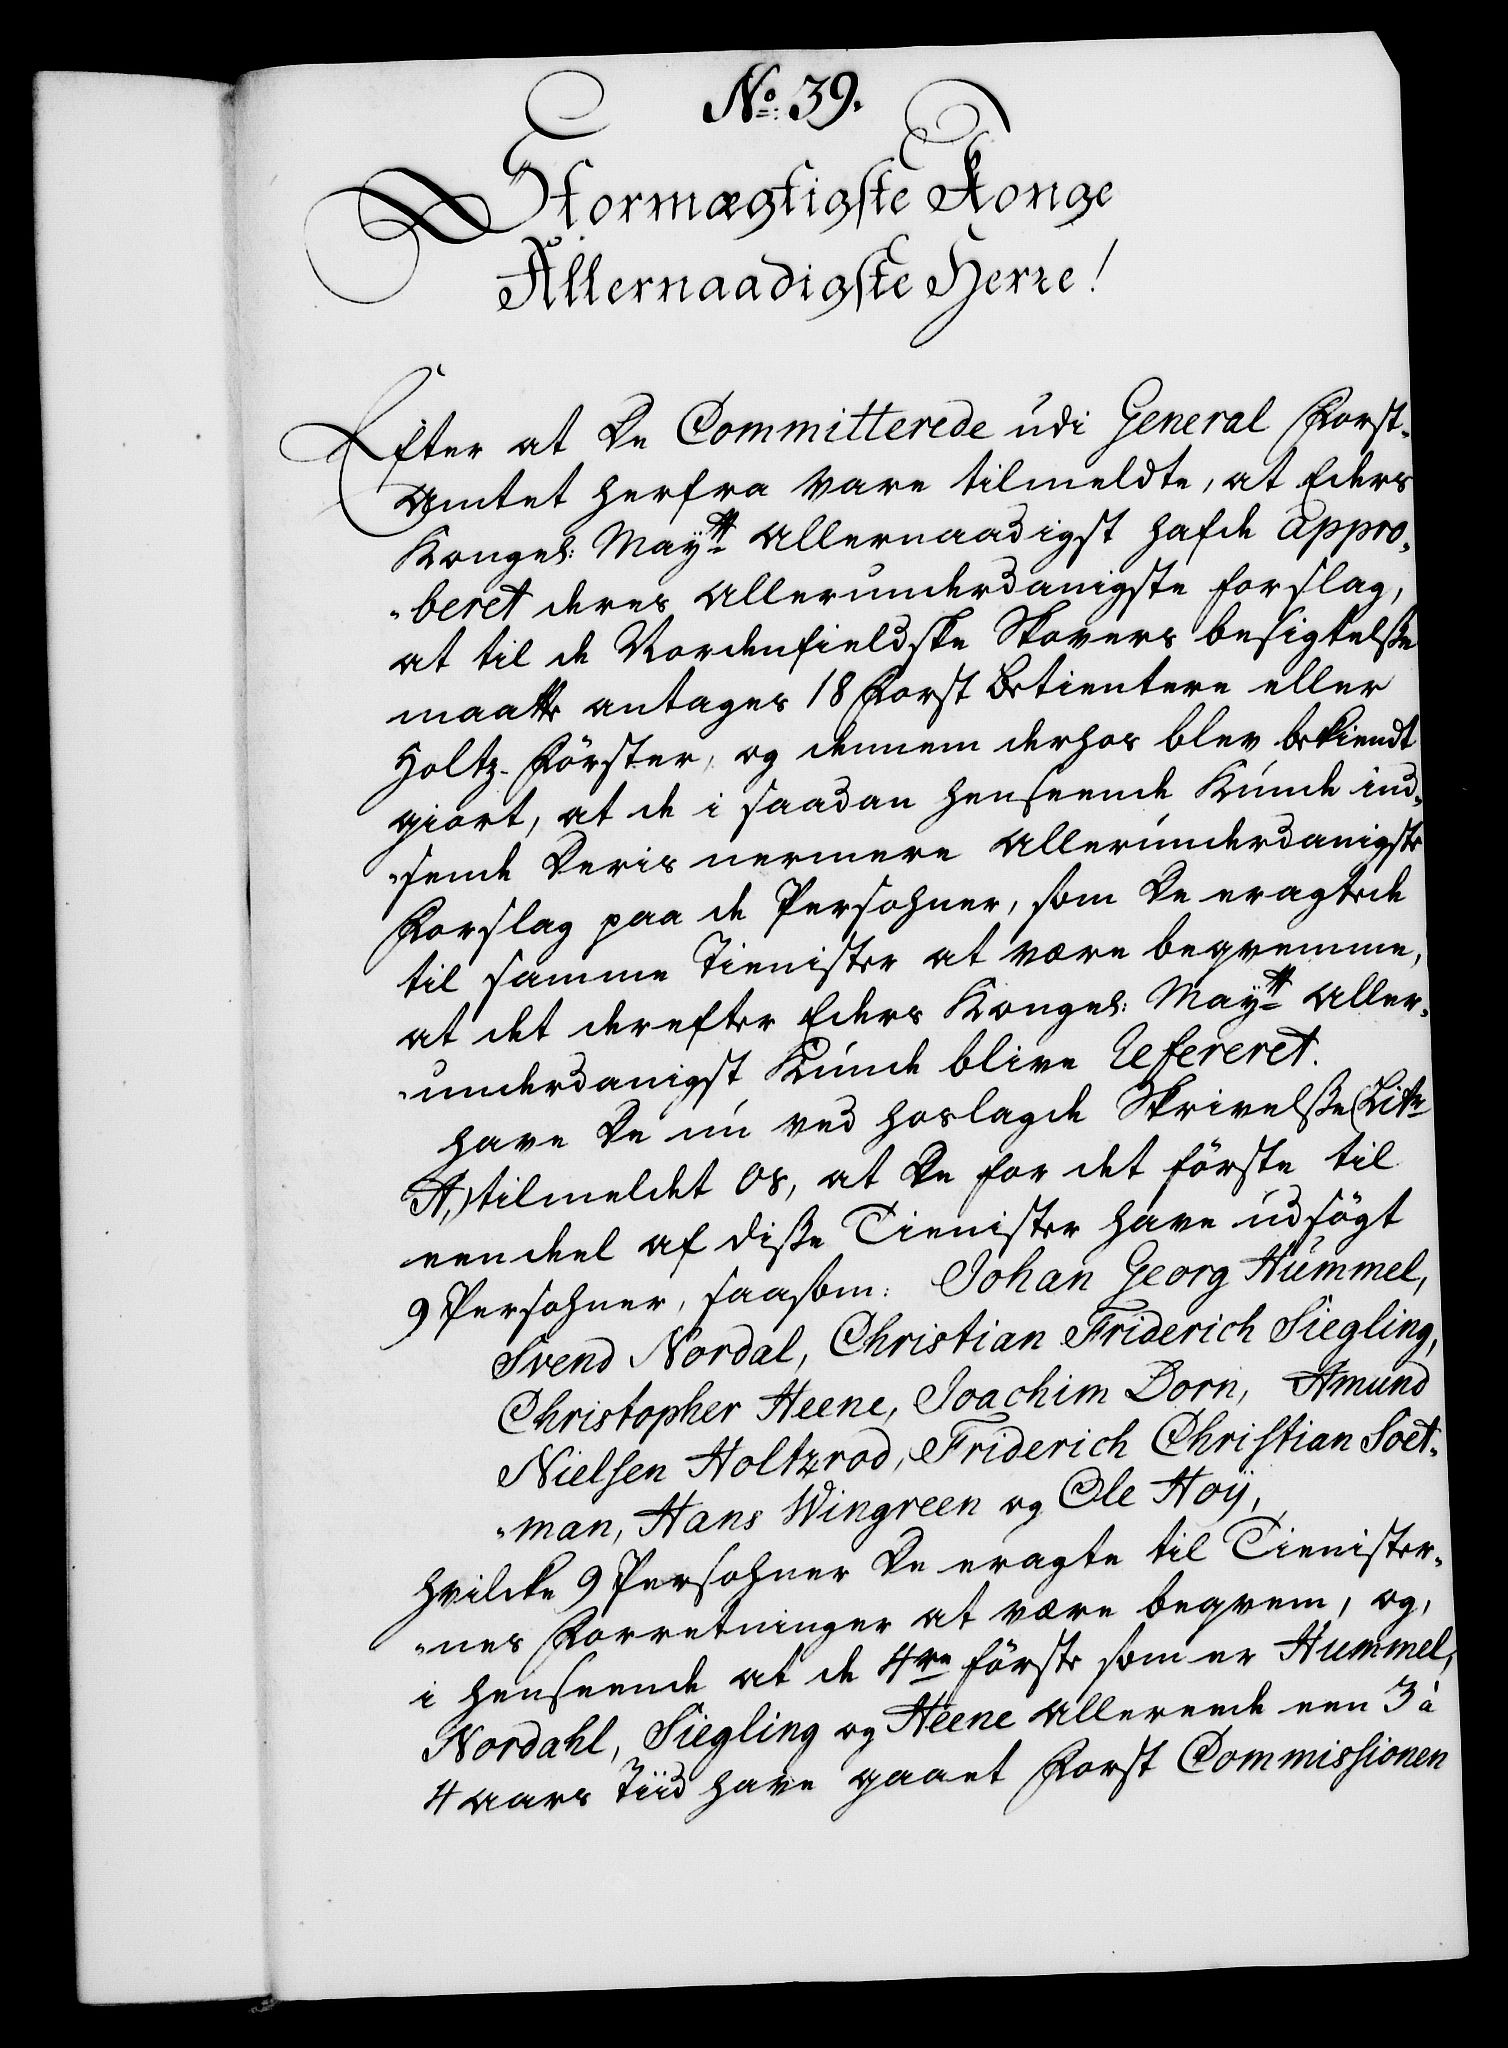 No: 39.
Stormægtigste Konge
Allernaadigste Herre!
Efter at De Committerede udi General Forst-
Amtet herfra vare tilmeldte, at Eders
Kongel: Maytt Allernaadigst hafde appro-
beret deres Allerunderdanigste forslag,
at til de Nordenfieldske Skovers besigtelsse
maatte antages 18 Forst Betientere eller
Holtz-Förster, og dennem derhos blev bekiendt
giort, at de i saadan henseende kunde ind-
sende Deris nermere Allerunderdanigste
Forslag paa de Persohner, som De eragtede
til samme Tienister at være beqvemme,
at det derefter Eders Kongel: Maytt Aller-
underdanigst kunde blive Refereret.
Have De nu ved hoslagde Skrivelsse (Litr
A,) tilmeldet os, at De for det förste til
een deel af disse Tienister have udsögt
9 Persohner, saasom: Johan Georg Hummel,
Svend Nordal, Christian Friderich Siegling,
Christopher Heene, Joachim Dorn, Amund
Nielsen Holtzrod, Friderich Christian Soet-
man, Hans Wingreen og Ole Hoÿ,
hvilcke 9 Persohner De eragte til Tienister-
nes Forretninger at være beqvem, og,
i henseende at de 4re förste som er Hummel,
Nordahl, Siegling og Heene allereede een 3 à
4 aars Tiid have gaaet Forst Commissionen